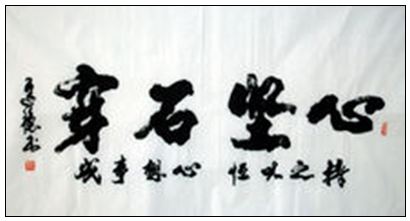 心坚石穿
持之以恒 心想事成